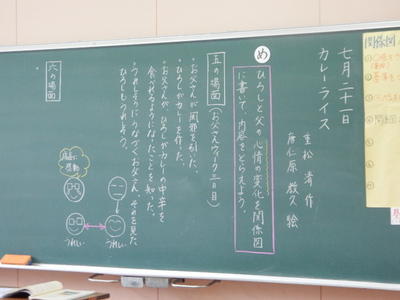 七月二十一日
カレーライス
重松 清 作
唐仁原 教久 絵
め
ひろしと父の心情の変化を関係図
に書いて、内容をとらえよう。
五の場面(お父さんウィーク三日目)
・お父さんが風邪を引いた。
・ひろしがカレーを作った。
・お父さんが、ひろしがカレーの中辛を
食べれるようになったことを知った。
・うれしそうにうなずくお父さん、それを見た
ひろしもうれしそう。
うれしい
うれしい
六の場面
関係図